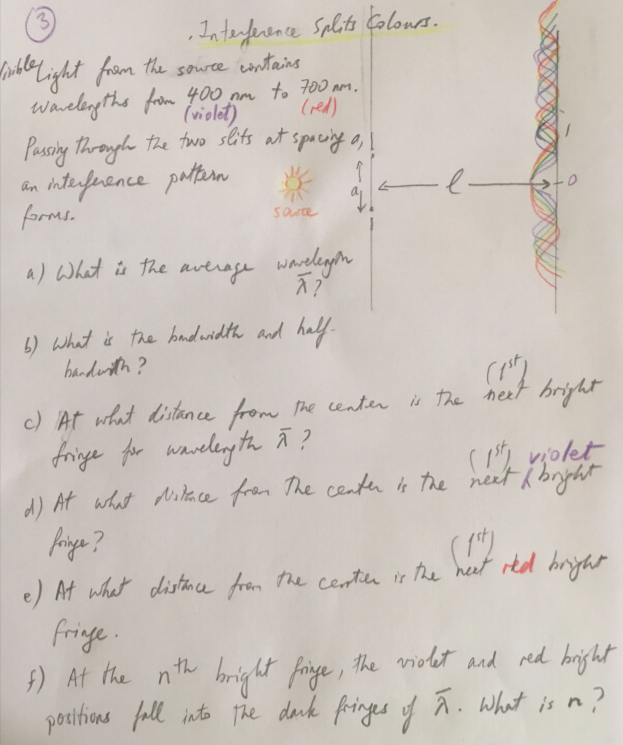 3
. Interference Splits Colours.
Visible Light from the source contains
wavelengths from 400 nm to 700 nm.
(violet) (red)
Passing through the two slits at spacing a,
an interference pattern
forms.
source
a
l
1
0
a) What is the average wavelength
λ̄?
b) What is the bandwidth and half-
bandwith?
c) At what distance from the center is the next bright
(1st)
fringe for wavelength λ̄?
(1st) violet
d) At what distance from the center is the next bright
fringe?
(1st)
e) At what distance from the center is the next red bright
fringe.
f) At the nth bright fringe, the violet and red bright
positions fall into the dark fringes of λ̄. What is n?